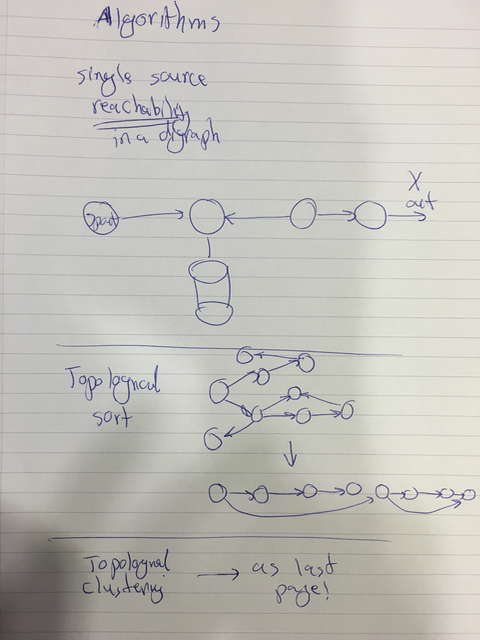 Algorithms
single source
reachability
in a digraph
X
out
Topological
sort
Topological
clustering → as last
page!